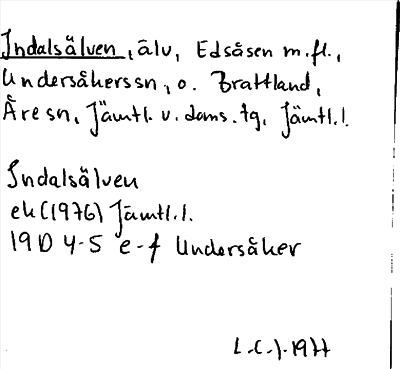 Indalsälven, älv, Edsåsen m.fl.,
Undersåkerssn, o. Brattland,
Åresn, Jämtl. v. doms. tg, Jämtl.l.
Indalsälven
ek (1976) Jämtl.l.
19D 4-5 e-f Undersåker
L.C.J. 1977